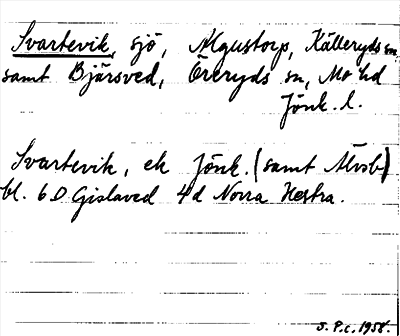 Svartevik, sjö, Algustorp, Källeryds sn,
samt Bjärsved, Öreryds sn, Mo hd
Jönk. l.
Svartevik, ek Jönk. (samt Älvsb)
bl. 6 D Gislaved 4d Norra Hestra.
S. P.c. 1958.